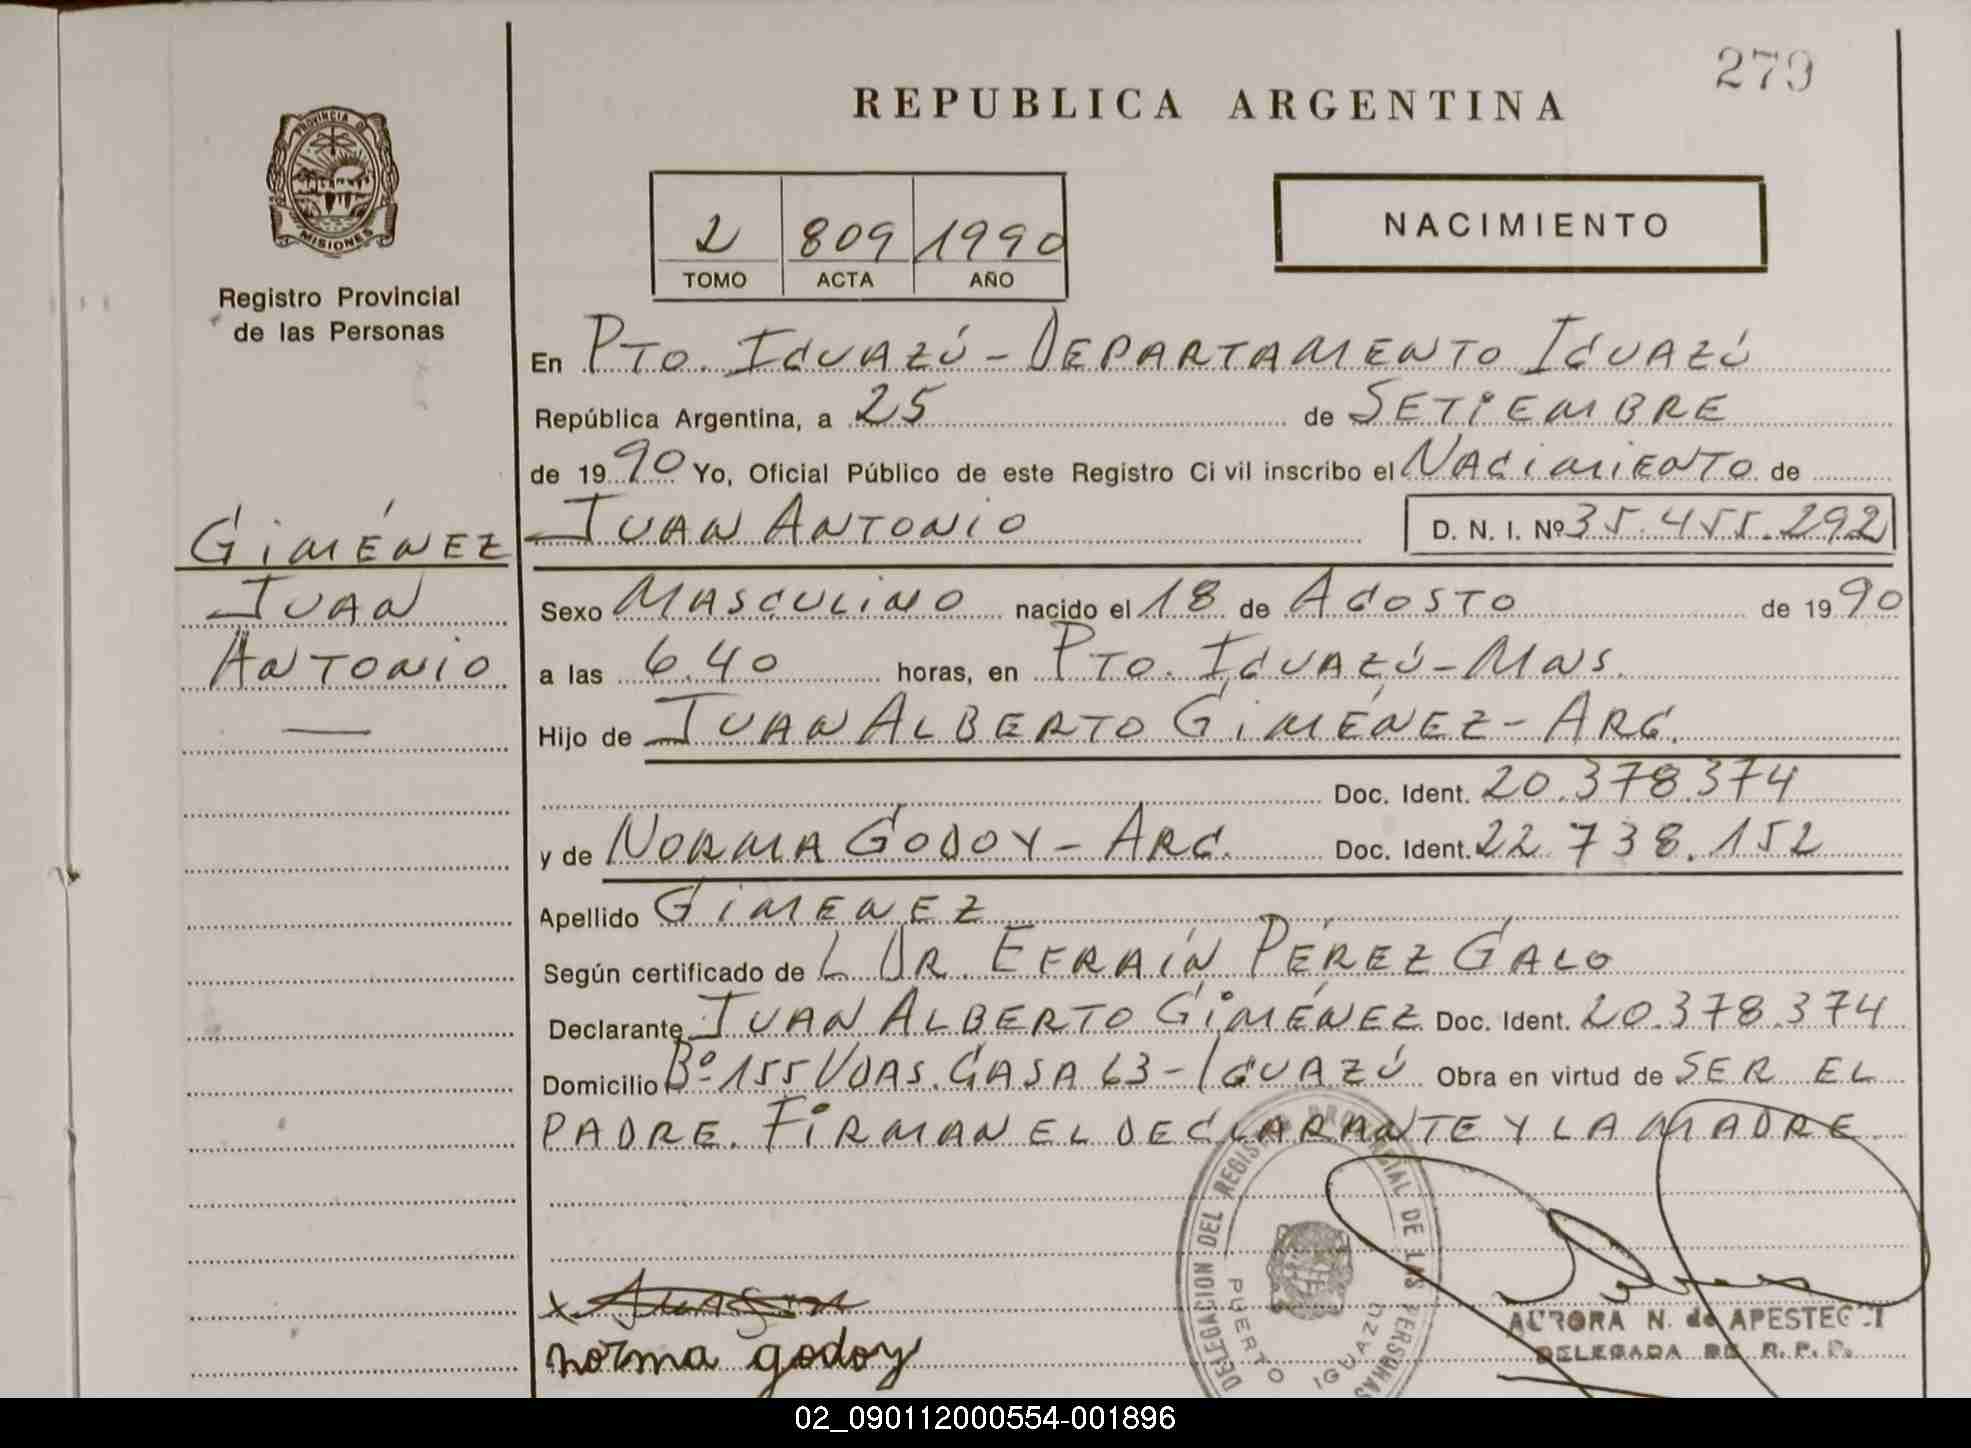 279
REPUBLICA ARGENTINA
PROVINCIA DE
MISIONES
Registro Provincial
de las Personas
2 809 1990
TOMO ACTA AÑO
NACIMIENTO
En Pto. Iguazú - Departamento Iguazú
República Argentina, a 25 de Setiembre
de 1990 Yo, Oficial Público de este Registro Civil inscribo el Nacimiento de
Giménez
Juan
Antonio
Juan Antonio D. N. I. Nº 35.455.292
Sexo Masculino nacido el 18 de Agosto de 1990
a las 6.40 horas, en Pto. Iguazú - Mns.
Hijo de Juan Alberto Giménez - Arg.
Doc. Ident. 20.378.374
y de Norma Godoy - Arg. Doc. Ident. 22.738.152
Apellido Gimenez
Según certificado de L Dr. Efraín Pérez Galo
Declarante Juan Alberto Giménez Doc. Ident. 20.378.374
Domicilio Bº 155 Vdas. Casa 63 - Iguazú Obra en virtud de ser el
padre. Firman el declarante y la madre
DELEGACION DEL REGISTRO PROVINCIAL DE LAS PERSONAS
PUERTO IGUAZU
AURORA N. de
DELEGADA DE R. P. P.
x
norma godoy
02_090112000554-001896